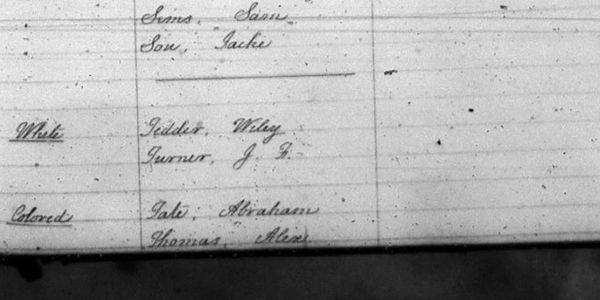 Sims, Sam
Son, Jacke
White Tedder, Wiley
Turner, J. F.
Colored Tate, Abraham
Thomas, Alex